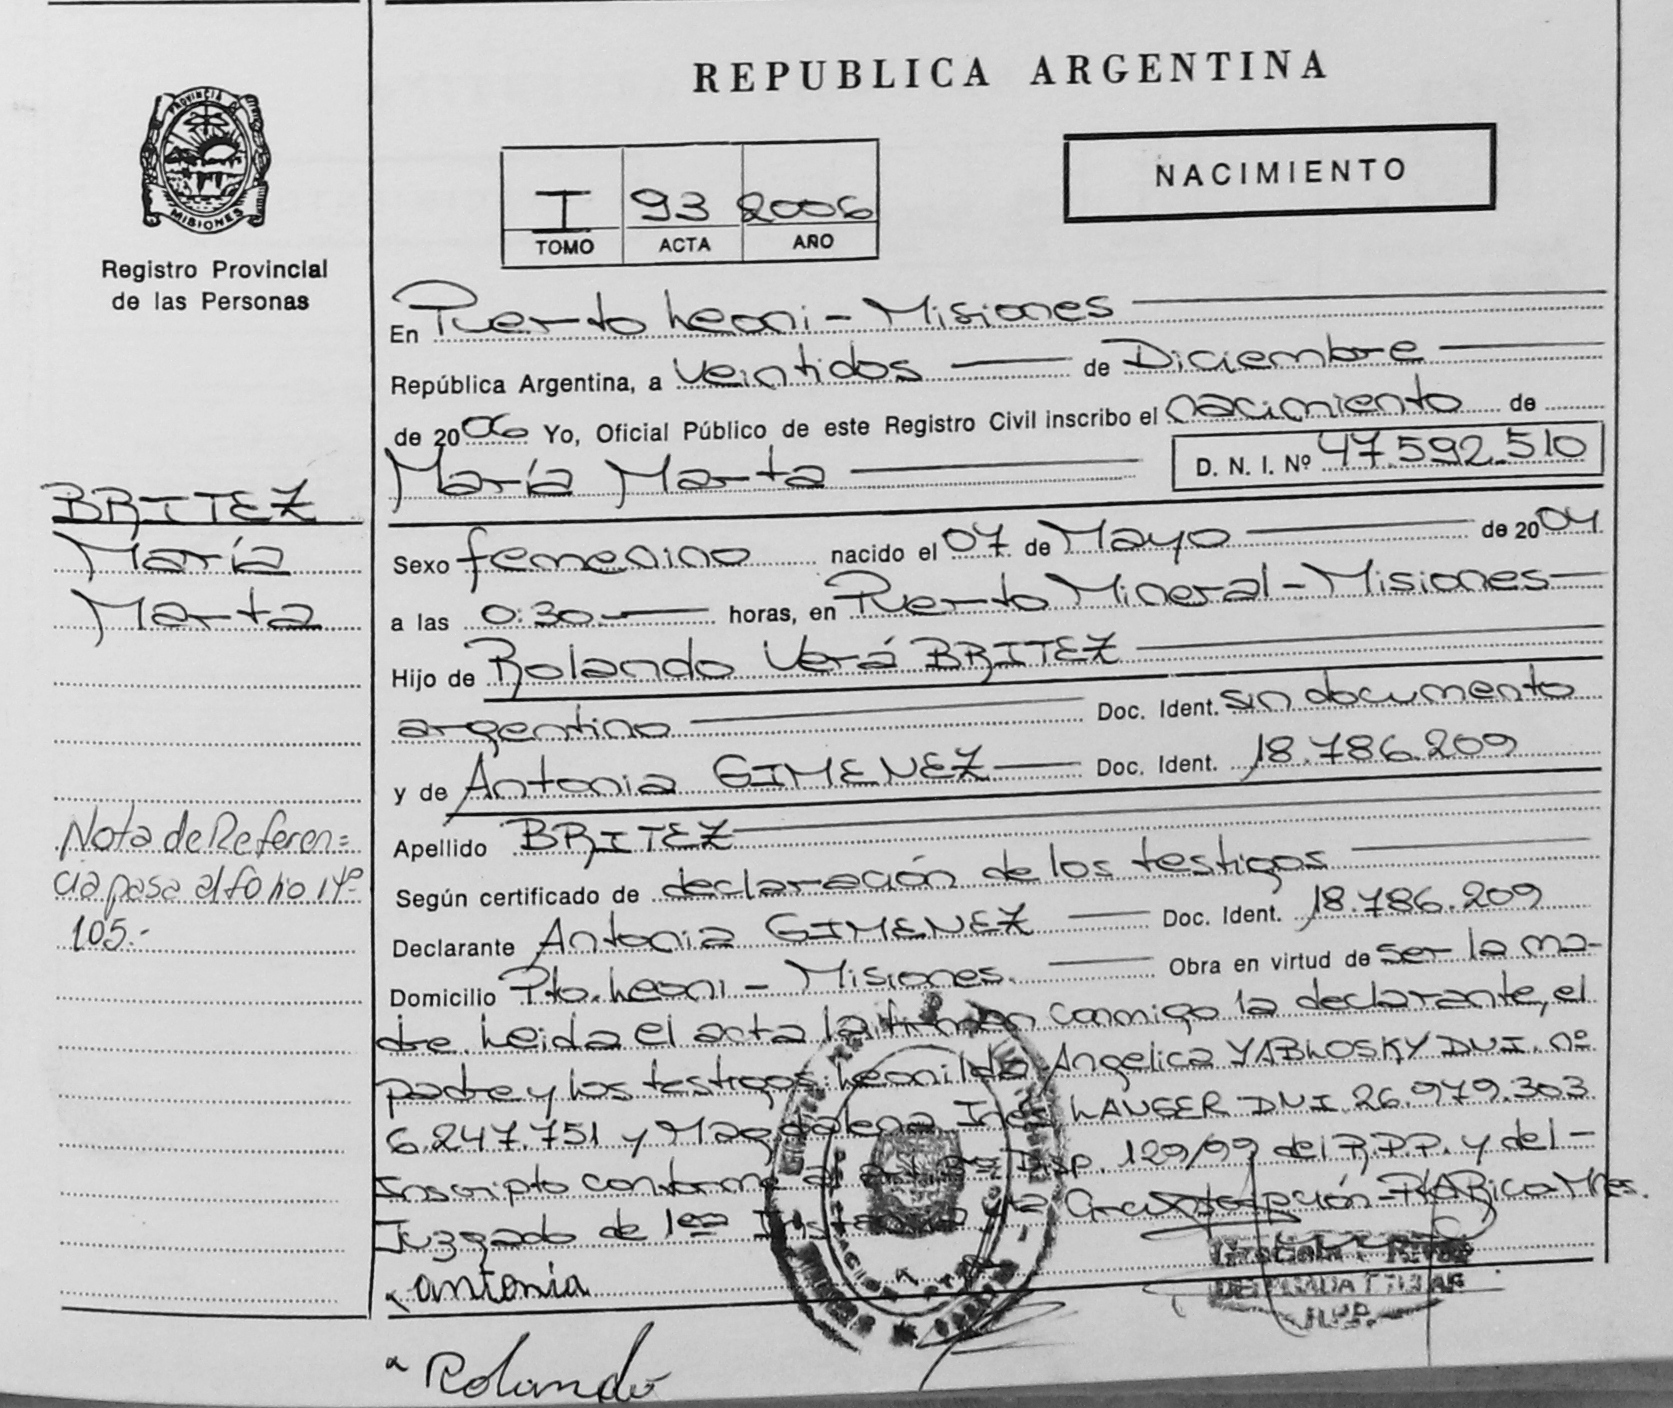 REPUBLICA ARGENTINA
PROVINCIA D
MISIONES
Registro Provincial
de las Personas
NACIMIENTO
I 93 2006
TOMO ACTA AÑO
En Puerto Leoni - Misiones
República Argentina, a veintidos de Diciembre
de 2006 Yo, Oficial Público de este Registro Civil inscribo el nacimiento de
María Marta D. N. I. Nº 47.592.510
BRITEZ
María
Marta
Sexo femenino nacido el 07 de Mayo de 2004
a las 0:30 horas, en Puerto Mineral - Misiones
Hijo de Rolando Verá BRITEZ
argentino Doc. Ident. sin documento
y de Antonia GIMENEZ Doc. Ident. 18.786.209
Nota de Referen=
cia pasa al folio Nº
105.-
Apellido BRITEZ
Según certificado de declaración de los testigos
Declarante Antonia GIMENEZ Doc. Ident. 18.786.209
Domicilio Pto. Leoni - Misiones. Obra en virtud de ser la ma-
dre. Leida el acta la firman conmigo la declarante, el
padre y los testigos: Leonilda Angelica YABLOSKY DNI. nº
6.247.751 y Magdalena Inés LANGER DNI. 26.979.303
Inscripto conforme al Disp. 129/99 del R.P.P. y del-
Juzgado de 1era Instancia
antonia
Rolando
R.P.P.